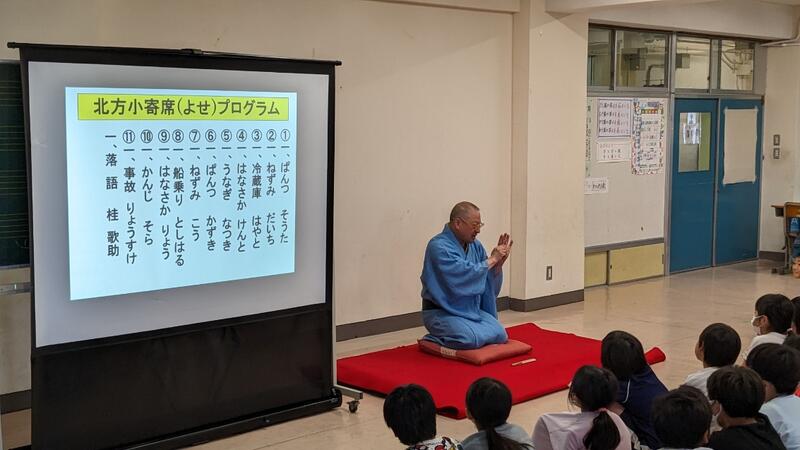 北方小寄席(よせ)プログラム
①、ぱんつ そうた
②、ねずみ だいち
③、冷蔵庫 はやと
④、はなさか けんと
⑤、うなぎ なつき
⑥、ぱんつ かずき
⑦、ねずみ こう
⑧、船乗り としはる
⑨、はなさか りょう
⑩、かんじ そら
⑪、事故 りょうすけ
一、落語 桂 歌助